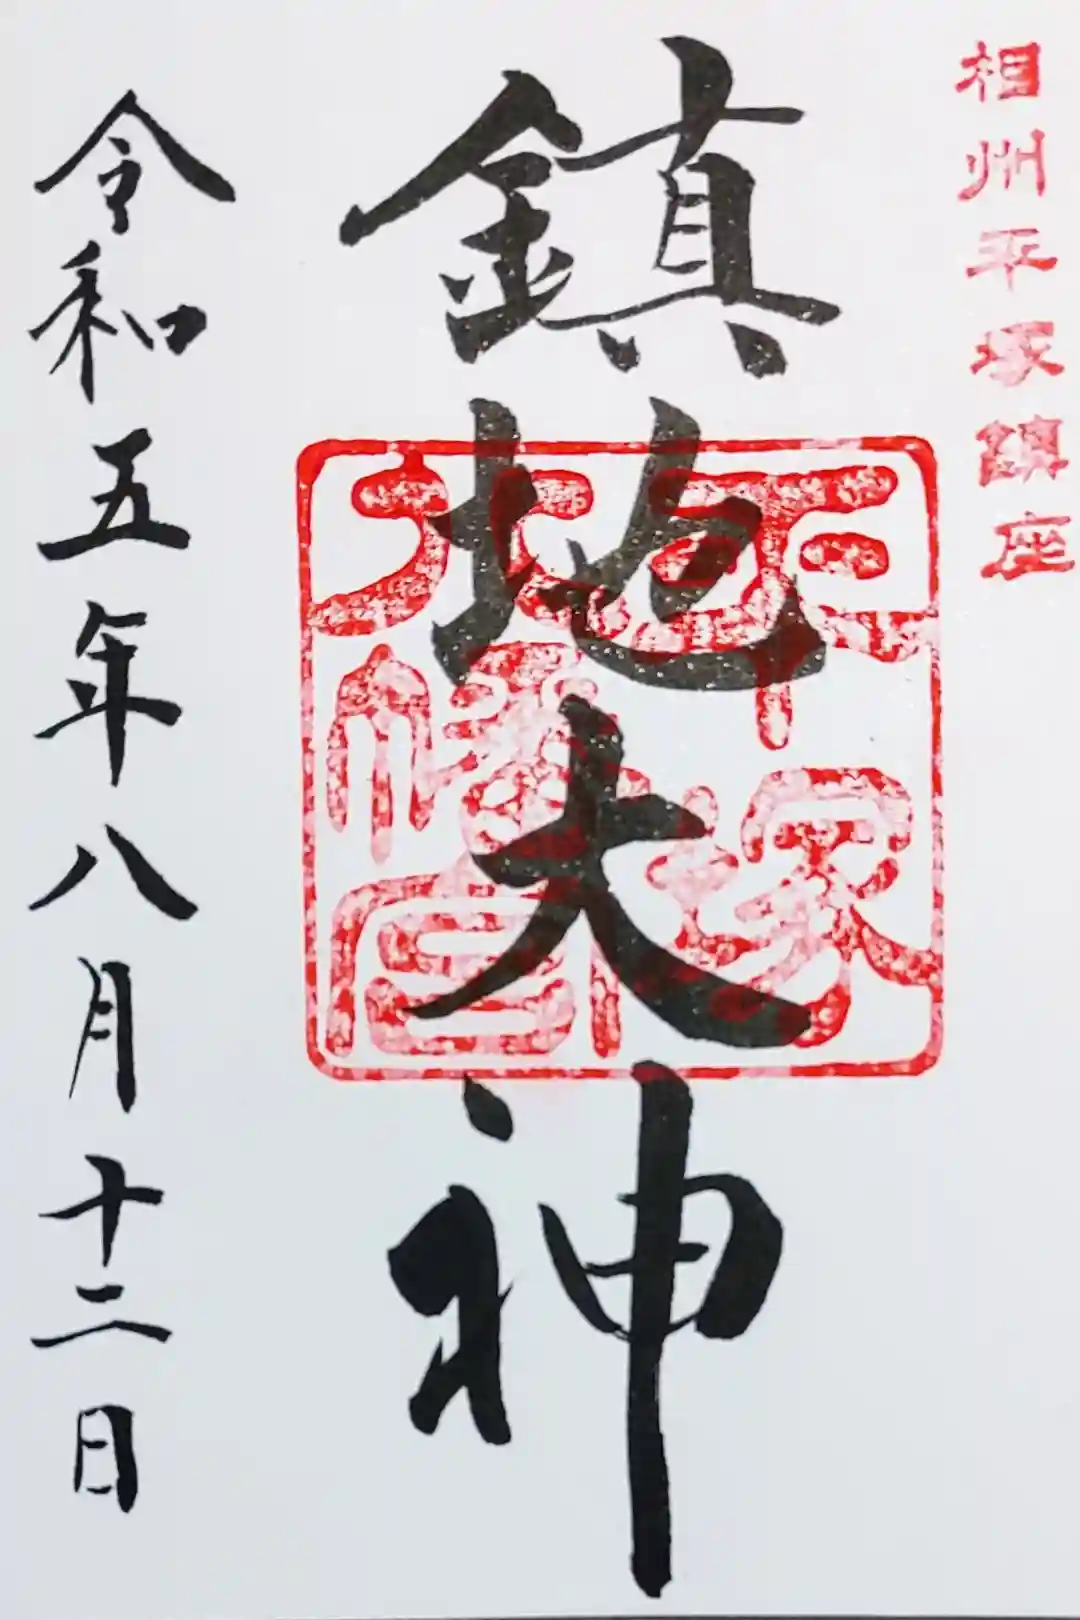 相州平塚鎮座
鎮地大神
平塚
八幡宮
令和五年八月十二日